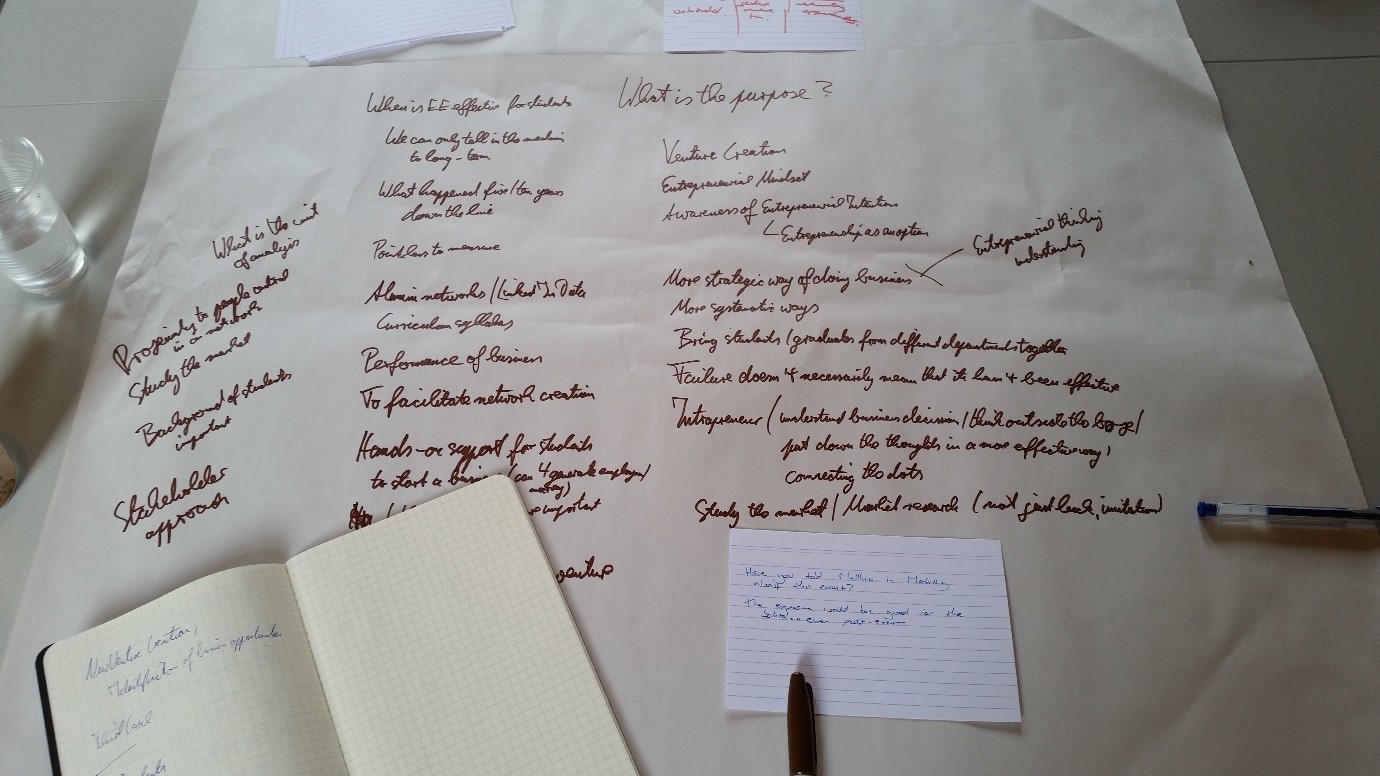 When is EE effective for students
We can only tell in the medium
to long-term
What happened five/ten years
down the line
Pointless to measure
Alumni networks/LinkedIn Data
Curriculum syllabus
Performance of business
To facilitate network creation
Hands-on support for students
to start a (can't generate employm/
money)
important
venture
What is the unit
of analysis
Proximity to people
in a network
Study the market
Background of students
important
Stakeholder
approach
What is the purpose?
Venture Creation
Entrepreneurial Mindset
Awareness of Entrepreneurial Intention
Entrepreneurship as an option
More strategic way of doing business
Entrepreneurial thinking
understanding
More systematic ways
Bring students/graduates from different departments together
Failure doesn't necessarily mean that it hasn't been effective
Intrapreneur/understand business decision/think outside the box/
put down the thoughts in a more effective way,
connecting the dots
Study the market/Market research (not just luck, imitation)
Have you told in Marketing
about this event?
The exposure would be good for the
School.. even post-event
New Venture Creation,
Identification of business opportunities